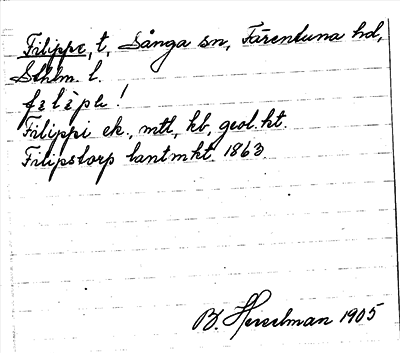 Filippe, t, Sånga sn, Färentuna hd,
Sthlm. l.
fɩlèpɩ !
Filippi ek., mtl, hb, geol. kt.
Filipstorp lantmkt 1863
B. Hesselman 1905